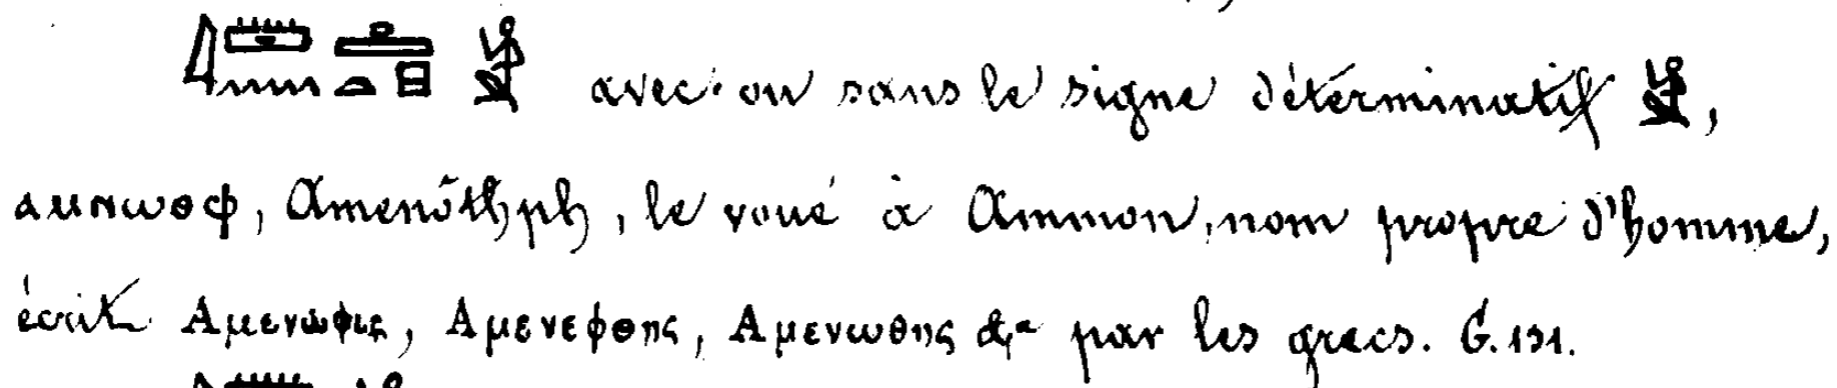 𓇋𓏠𓈖𓊵𓏏𓊪𓀀 avec ou sans le signe déterminatif 𓀀,
ⲁⲙⲛⲱⲑⲫ, Amenôthph, le voué à Ammon, nom propre d'homme,
écrit Αμενωφις, Αμενεφθης, Αμενωθης &a par les grecs. G. 131.